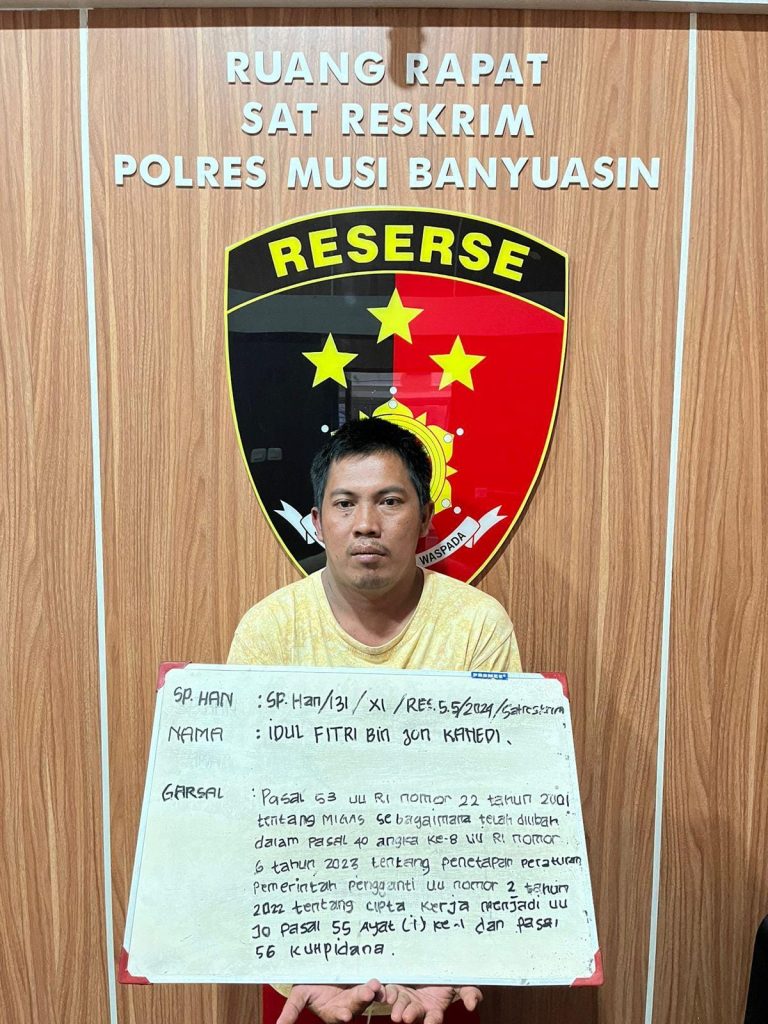 RUANG RAPAT
SAT RESKRIM
POLRES MUSI BANYUASIN
RESERSE
WASPADA
PROMEX
SP. HAN : SP. Han/131/XI/RES.5.5/2024/Satreskrim
NAMA : IDUL FITRI Bin JON KANEDI.
GARSAL : Pasal 53 UU RI nomor 22 tahun 2001
tentang MIGAS sebagaimana telah diubah
dalam pasal 40 angka ke-8 UU RI nomor
6 tahun 2023 tentang penetapan peraturan
Pemerintah Pengganti UU nomor 2 tahun
2022 tentang cipta kerja menjadi UU
JO Pasal 55 Ayat (1) ke-1 dan Pasal
56 KUHPidana.